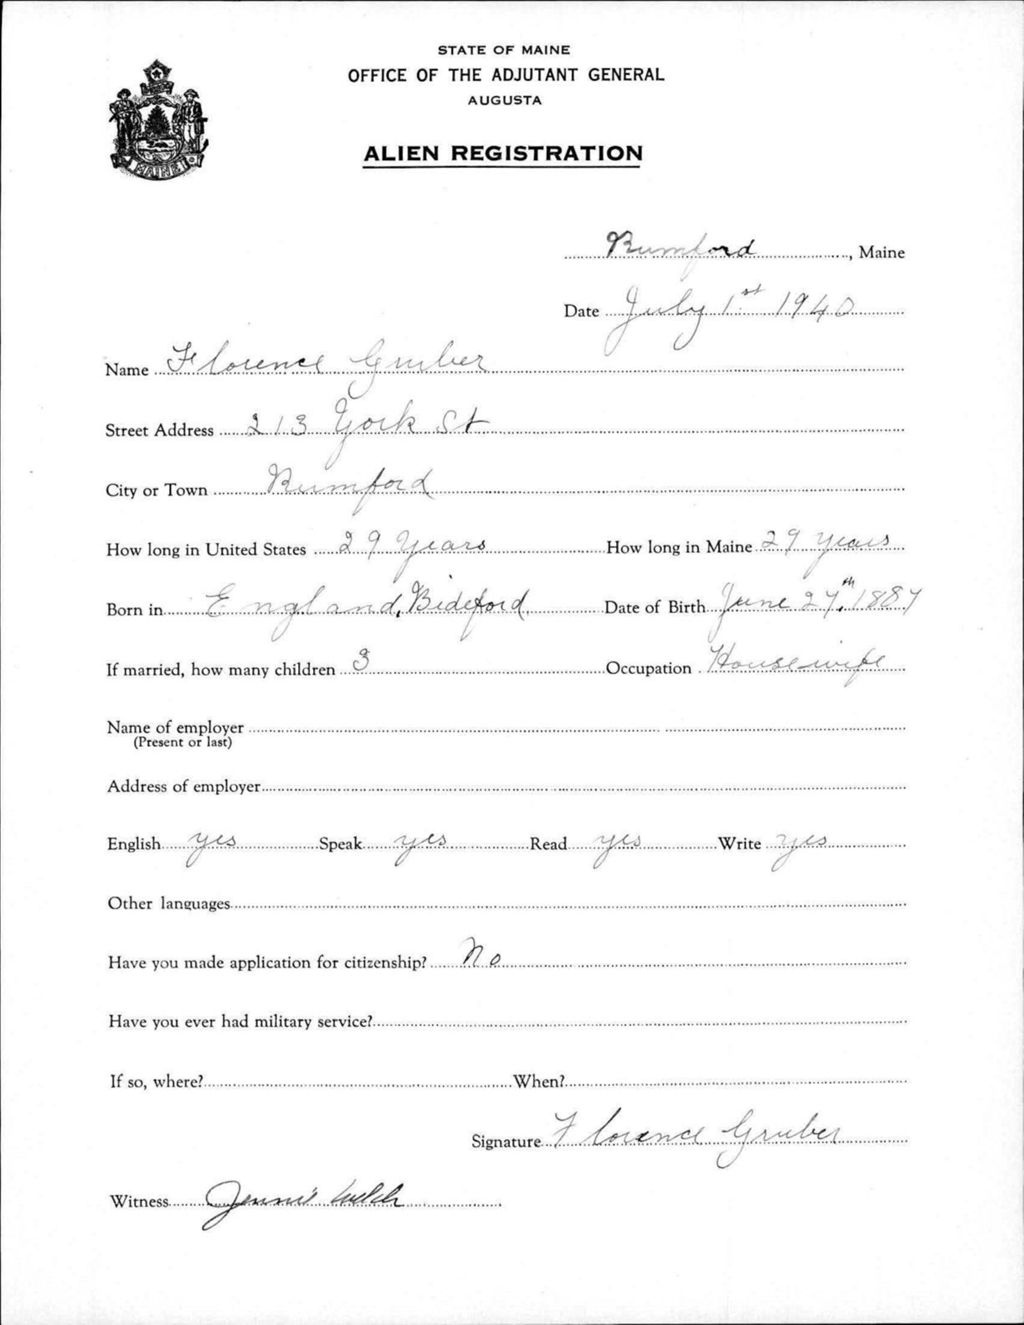 STATE OF MAINE
OFFICE OF THE ADJUTANT GENERAL
AUGUSTA
ALIEN REGISTRATION
MAINE
Rumford, Maine
Date July 1st 1940
Name Florence Gruber
Street Address 213 York St
City or Town Rumford
How long in United States 29 Years How long in Maine 29 years
Born in England, Bideford Date of Birth June 27th, 1887
If married, how many children 3 Occupation Housewife
Name of employer
(Present or last)
Address of employer
English yes Speak yes Read yes Write yes
Other languages
Have you made application for citizenship? No
Have you ever had military service?
If so, where? When?
Signature Florence Gruber
Witness Jennie Welch